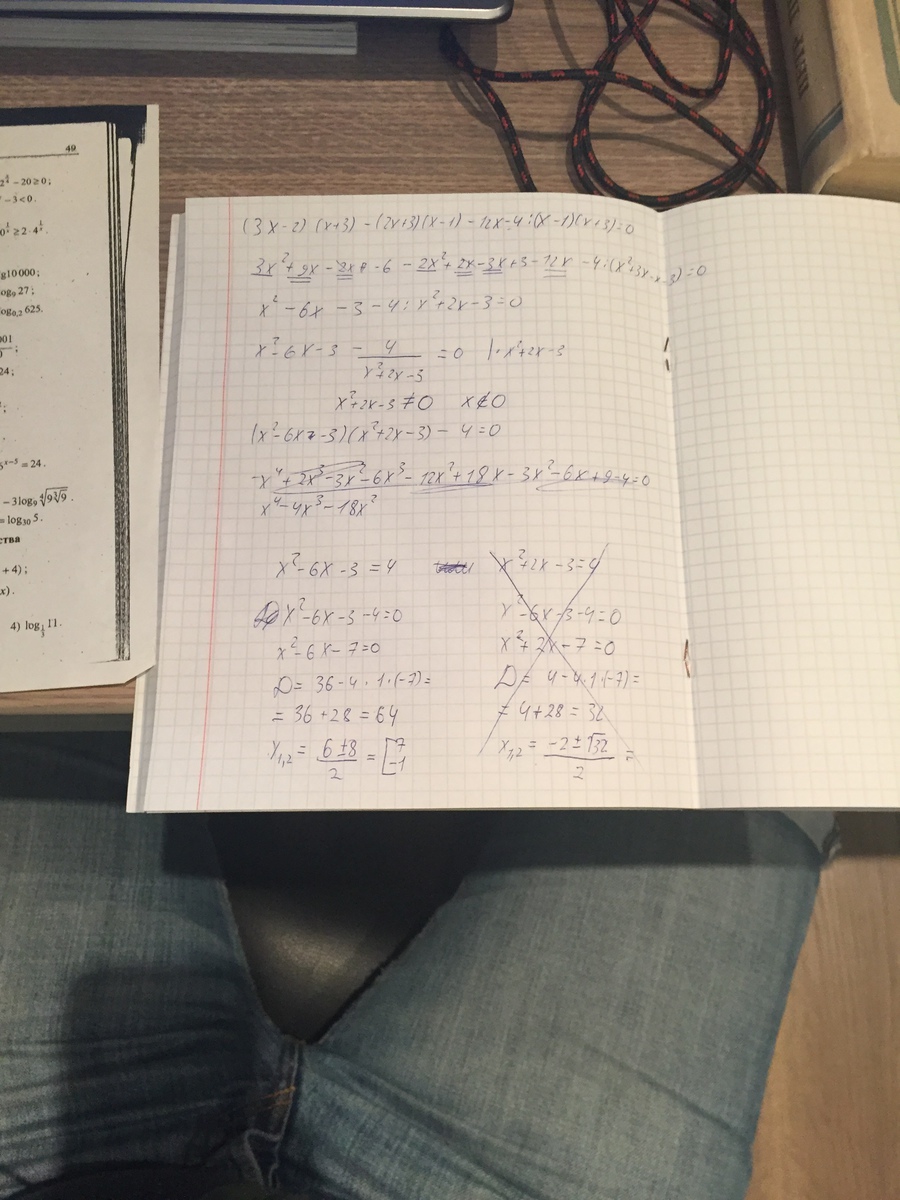 49
−20≥0;
−3<0.
≥2·4
g10000;
og₉27;
log₀,₂625.
001
24;
=24.
−3log₉⁴√9³√9.
=log₃₀5.
ства
+4);
x).
4) log 11.
(3x-2)(x+3)-(2x+3)(x-1)-12x-4:(x-1)(x+3)=0
3x²+9x-2x-6-2x²+2x-3x+3-12x-4:(x²+3x-x-3)=0
x²-6x-3-4:x²+2x-3=0
x²-6x-3-4/(x²+2x-3)=0 |·x²+2x-3
x²+2x-3≠0 x≠0
(x²-6x-3)(x²+2x-3)-4=0
x⁴+2x³-3x²-6x³-12x²+18x-3x²-6x+9-4=0
x⁴-4x³-18x²
x²-6x-3=4 x²+2x-3=4
x²-6x-3-4=0 x²-6x-3-4=0
x²-6x-7=0 x²+2x-7=0
D=36-4·1·(-7)= D=4-4·1·(-7)=
=36+28=64 =4+28=32
x₁,₂=(6±8)/2=[7 -1 x₁,₂=(-2±√32)/2=